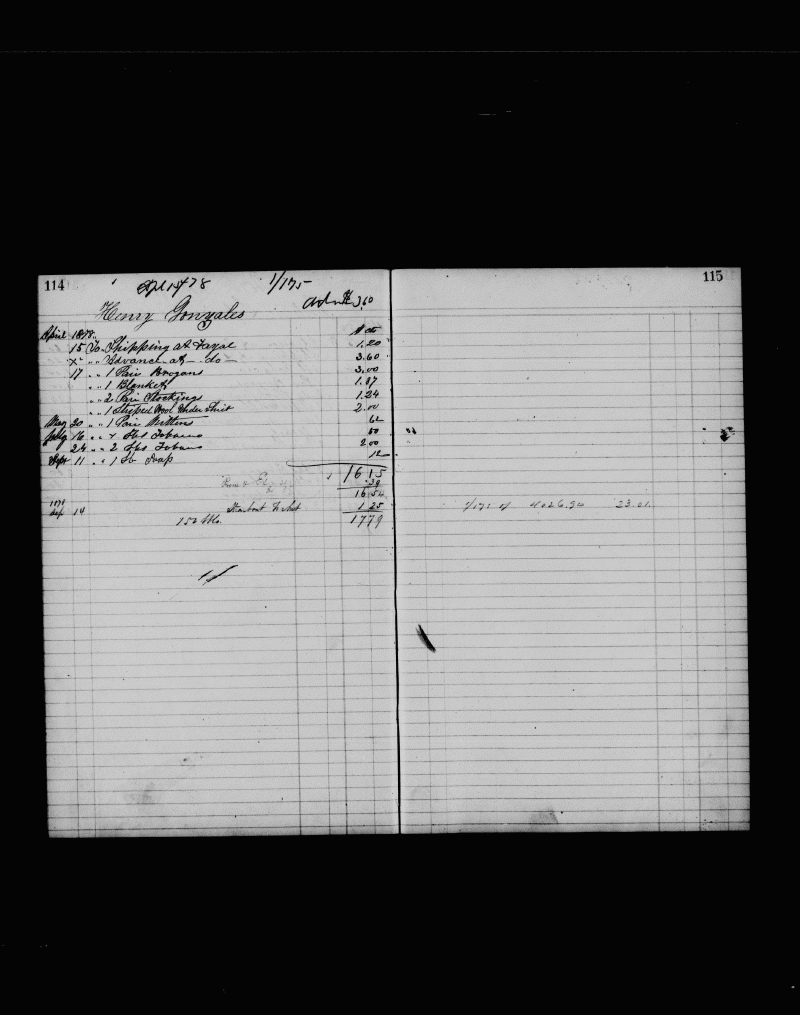 114
Apl 15th 78 1/175
Adv 3.60
Henry Gonzales
April 1878
15 To Shipping at Fayal 1.20
" " Advance at - do - 3.60
17 " " 1 Pair Brogans 3.00
" " 1 Blanket 1.87
" " 2 Pair Stockings 1.24
" " 1 Striped Wool Under Shirt 2.00
May 20 " " 1 Pair Mittens 62
16 " " lbs Tobacco 50
24 " " 2 lbs Tobacco 2.00
Sept 11 " " 1 lb Soap 12
16 15
.39
16 54
1878
Sep 14 Steamboat Ticket 1 25
17 79
115
1/175 of 4026.90 23.01